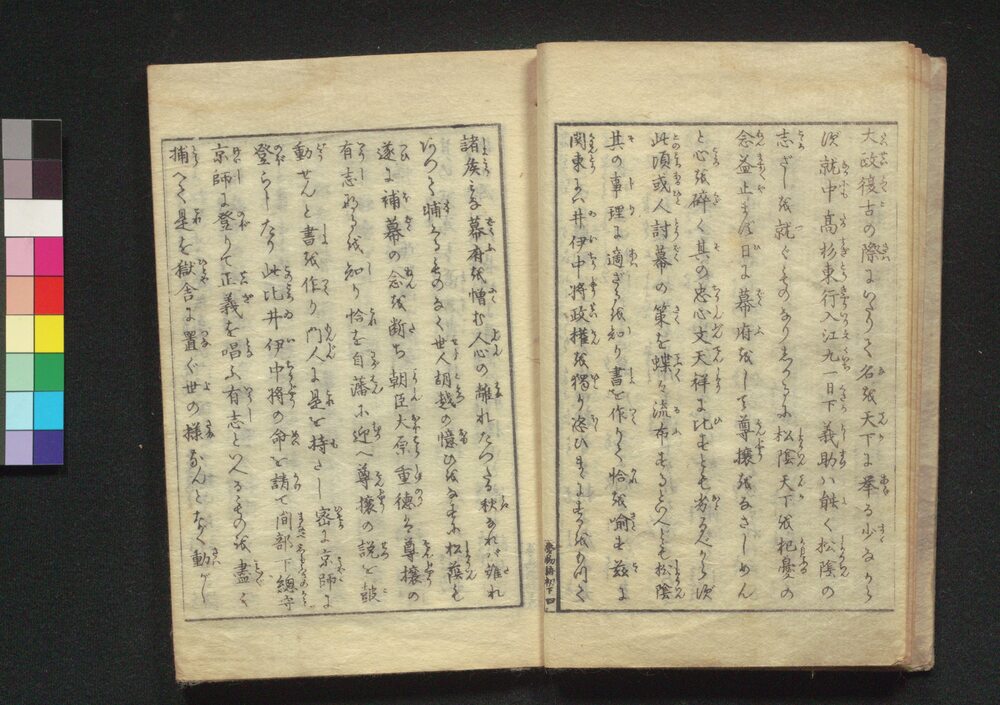 大政復古の際にいたりて名を天下に挙る少なから
ず就中高杉東行入江九一日下義助ハ能く松陰の
志ざしを就ぐものなりしかるに松陰天下を杞憂の
念益止まず日に幕府をして尊攘をなさしめん
と心を砕く其の忠心文天祥に比すとも劣るべからず
此頃或人討幕の策を蝶々流布するといへども松陰
其の事理に適ざるを知り書を作りて恰を喩す茲に
関東は井伊中将政権を獨り恣ひまゝするをもつて
諸侯みな幕府を憎む人心の離れたつたる秋なれバ誰れ
あつて輔くるものなく世人胡越の憶ひをなすに松蔭も
遂に補幕の念を断ち朝臣大原重徳は尊攘の
有志なるを知り恰を自藩に迎へ尊攘の説を鼓
動せんと書を作り門人に是を持たし密に京師に
登らしたり此比井伊中将の命を請て間部下總守
京師に登りて正義を唱ふ有志といへるものを盡く
捕へて是を獄舎に置ぐ世の様なんとなく動がし